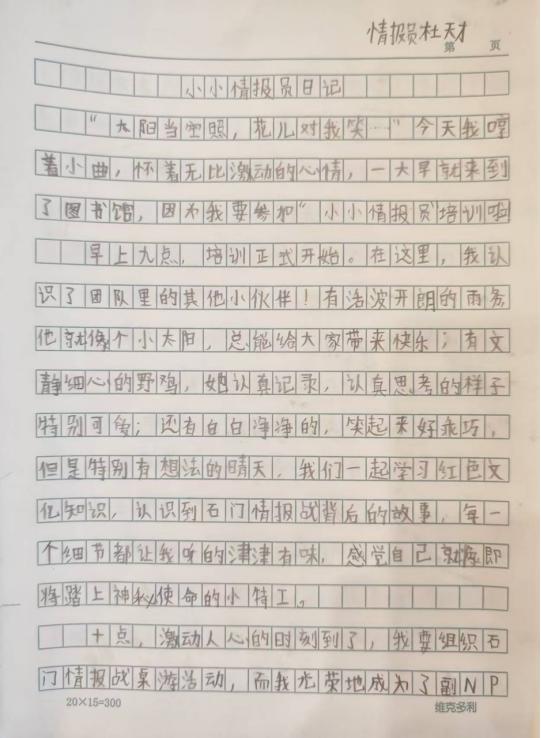 情报员杜天才
第 页
小小情报员日记
“太阳当空照，花儿对我笑……”今天我哼
着小曲，怀着无比激动的心情，一大早就来到
了图书馆，因为我要参加“小小情报员”培训啦
早上九点，培训正式开始。在这里，我认
识了团队里的其他小伙伴！有活波开朗的雨冬
他就像个小太阳，总能给大家带来快乐；有文
静细心的野鸡，她认真记录，认真思考的样子
特别可爱；还有白白净净的，笑起来好乖巧，
但是特别有想法的晴天，我们一起学习红色文
化知识，认识到石门情报战背后的故事，每一
个细节都让我听的津津有味，感觉自己就是即
将踏上神秘使命的小特工。
十点，激动人心的时刻到了，我要组织石
门情报战桌游活动，而我光荣地成为了副NP
20×15=300
维克多利